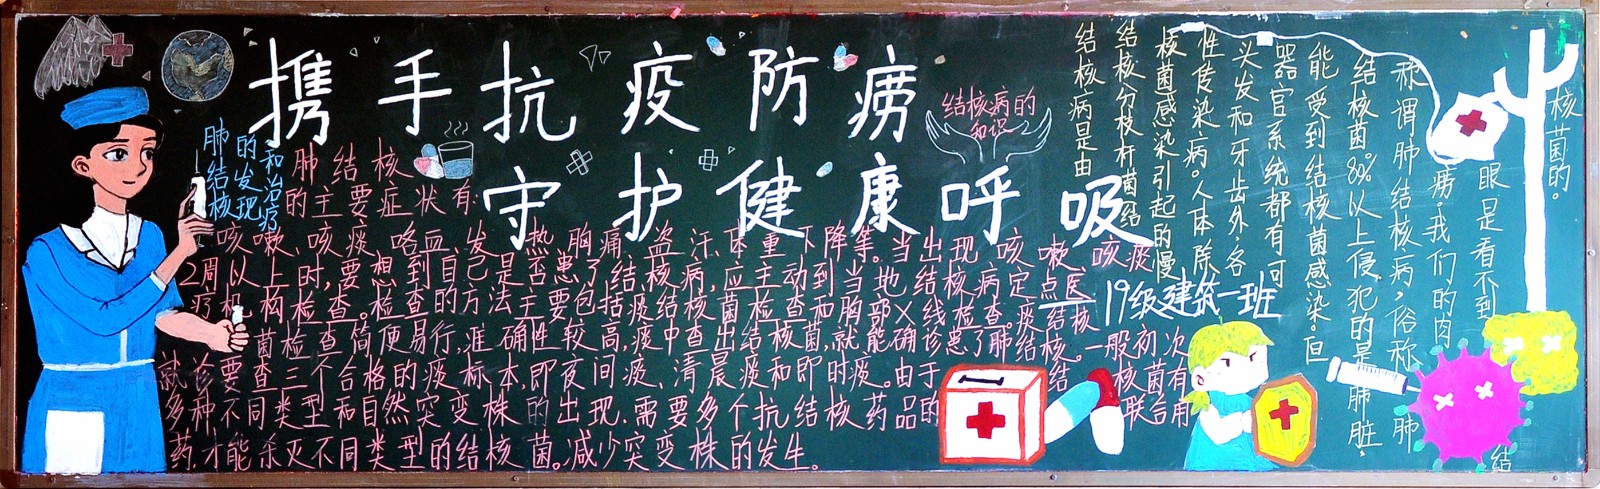 携手抗疫防痨
守护健康呼吸
肺结核
的发现
和治疗
肺结核
的主要症状有:
咳嗽、咳痰、咯血、发热、胸痛、盗汗、体重下降等。当出现咳嗽、咳痰
2周以上时,要想到自己是否患了结核病,应主动到当地结核病定点医
疗机构检查。检查的方法主要包括痰结核菌检查和胸部X线检查。痰结核
菌检查简便易行,准确性较高,痰中查出结核菌,就能确诊患了肺结核。一般初次
就诊要查三个合格的痰标本,即夜间痰、清晨痰和即时痰。由于结核菌有
多种不同类型和自然突变株的出现,需要多个抗结核药品的联合用
药,才能杀灭不同类型的结核菌。减少突变株的发生。
结核病的
知识
结核病是由
结核分枝杆菌(结
核菌感染引起的慢
性传染病。人体除
头发和牙齿外,各
器官系统都有可
能受到结核菌感染。但
结核菌80%以上侵犯的是肺脏,
称谓肺结核病,俗称肺
痨。我们的肉
眼是看不到结
核菌的。
19级建筑一班